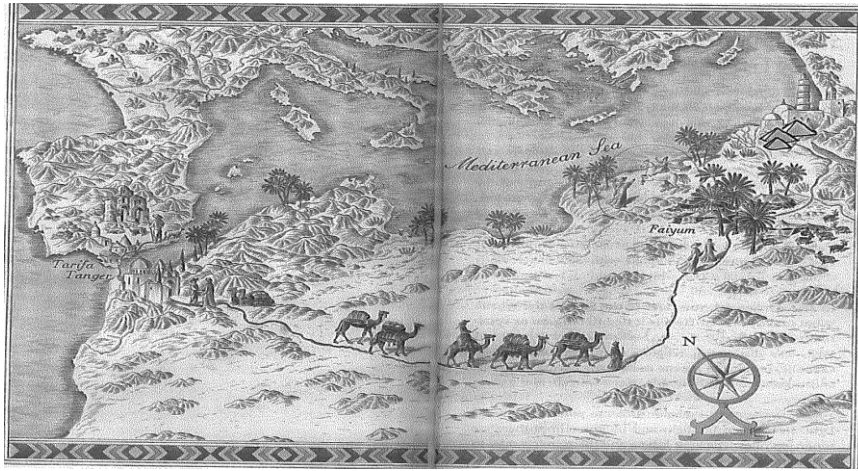 Mediterranean Sea
Faiyum
Tarifa
Tanger
N